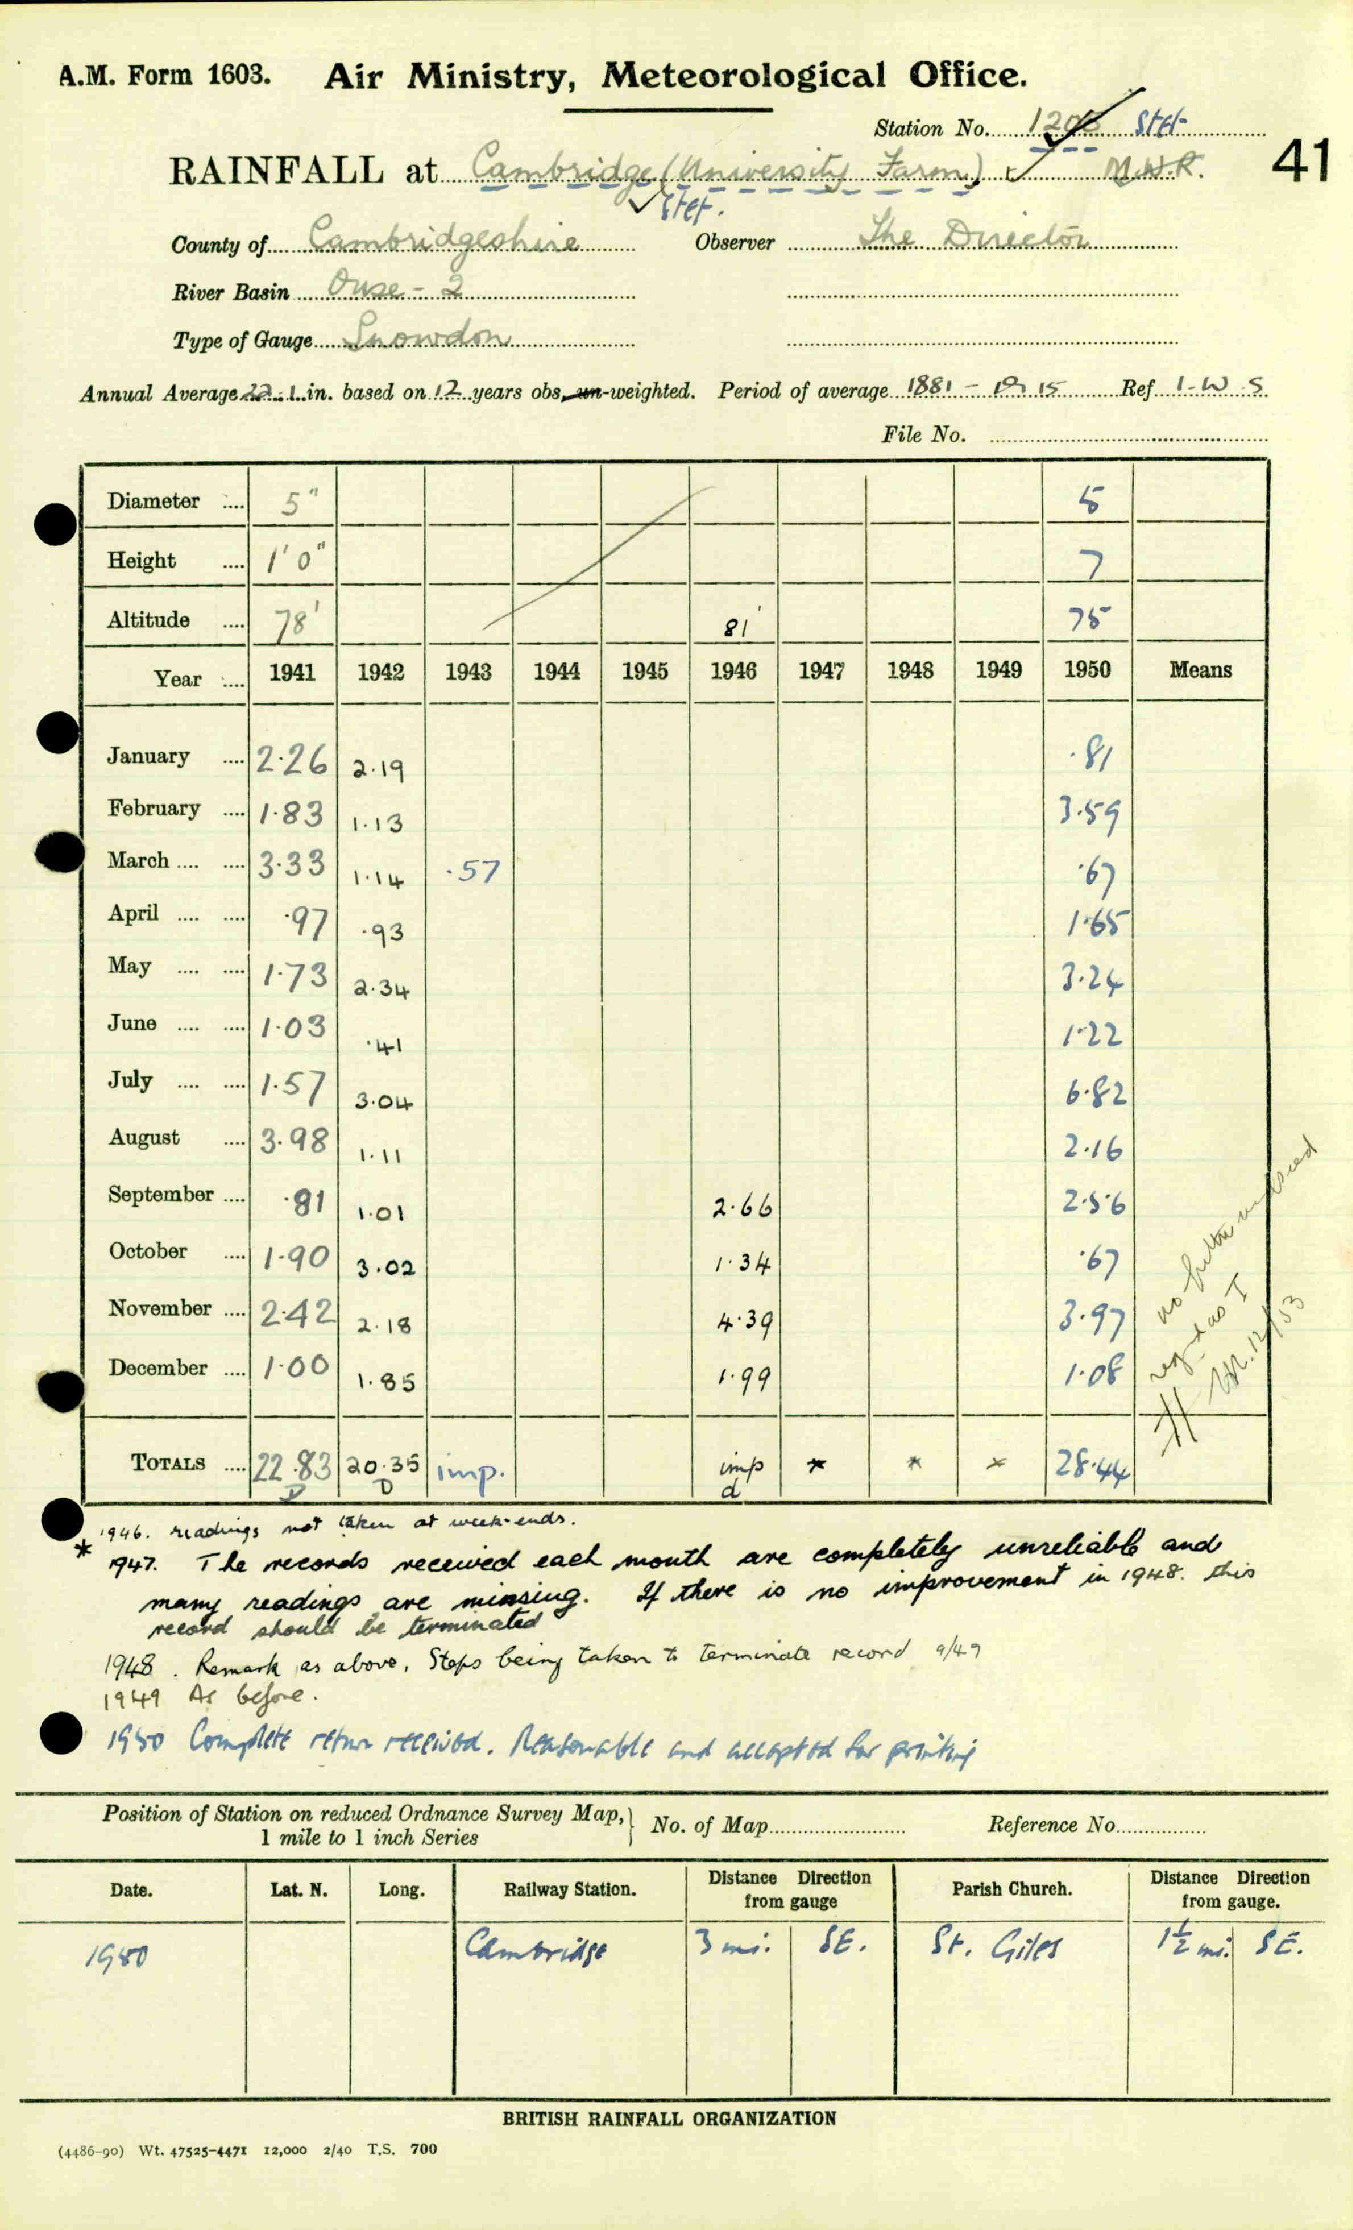 A.M. Form 1603. Air Ministry, Meteorological Office.
Station No. 1205 Stet
RAINFALL at Cambridge (University Farm) M.W.R. 41
Stet.
County of Cambridgeshire Observer The Director
River Basin Ouse - 2
Type of Gauge Snowdon
Annual Average 22.1 in. based on 12 years obs, un-weighted. Period of average 1881 - 1915 Ref I.W.S
File No.
Diameter .... 5" 5
Height .... 1' 0" 7
Altitude .... 78' 81' 75
Year .... 1941 1942 1943 1944 1945 1946 1947 1948 1949 1950 Means
January .... 2.26 2.19 .81
February .... 1.83 1.13 3.59
March .... .... 3.33 1.14 .57 .67
April .... .... .97 .93 1.65
May .... .... 1.73 2.34 3.24
June .... .... 1.03 .41 1.22
July .... .... 1.57 3.04 6.82
August .... 3.98 1.11 2.16
September .... .81 1.01 2.66 2.56
October .... 1.90 3.02 1.34 .67
November .... 2.42 2.18 4.39 3.97
December .... 1.00 1.85 1.99 1.08
TOTALS .... 22.83 20.35 imp. imp * * × 28.44
D D d
no
regd as I
12/53
1946. readings not taken at week-ends.
* 1947. The records received each month are completely unreliable and
many readings are missing. If there is no improvement in 1948. this
record should be terminated
1948. Remark as above. Steps being taken to terminate record 9/49
1949 As before.
1950 Complete return received. Reasonable and accepted for printing
Position of Station on reduced Ordnance Survey Map, } No. of Map Reference No.
1 mile to 1 inch Series
Date. Lat. N. Long. Railway Station. Distance Direction from gauge Parish Church. Distance Direction from gauge.
1950 Cambridge 3 mi. SE. St. Giles 1½ mi. SE.
BRITISH RAINFALL ORGANIZATION
(4486-90) Wt. 47525-4471 12,000 2/40 T.S. 700